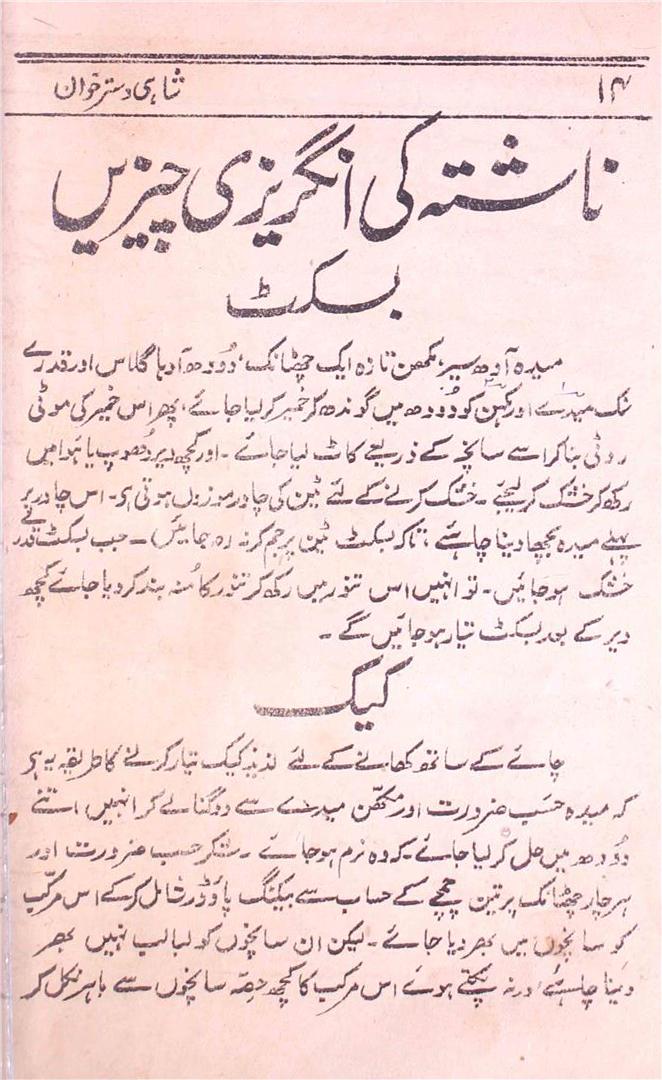 ۱۴ شاہی دسترخوان
ناشتہ کی انگریزی چیزیں
بسکٹ
میدہ آدھ سیر، مکھن تازہ ایک چھٹانک، دُودھ آدھا گلاس اور قدرے
نمک میدے اور مکھن کو دُودھ میں گوندھ کر خمیر کر لیا جائے، پھر اس خمیر کی موٹی
روٹی بنا کر اسے سانچہ کے ذریعے کاٹ لیا جائے۔ اور کچھ دیر دُھوپ یا ہوا میں
رکھ کر خشک کر لیجئے۔ خشک کرنے کے لئے ٹین کی چادر موزوں ہوتی ہے۔ اس چادر پر
پہلے میدہ بچھا دینا چاہئے، تاکہ بسکٹ ٹین پر جم کر نہ رہ جائیں)۔ جب بسکٹ قدرے
خشک ہو جائیں۔ تو انہیں اس تنور میں رکھ کر تنور کا مُنہ بند کر دیا جائے کچھ
دیر کے بعد بسکٹ تیار ہو جائیں گے۔
کیک
چائے کے ساتھ کھانے کے لئے لذیذ کیک تیار کرنے کا طریقہ یہ ہے
کہ میدہ حسَب ضرورت اور مکھن میدے سے دوگنا لے کر انہیں اتنے
دُودھ میں حل کر لیا جائے۔ کہ وہ نرم ہو جائے۔ شکر حسب ضرورت اور
ہر چار چھٹانک پر تین چمچے کے حساب سے بیکنگ پاؤڈر شامل کر کے اس مرکّب
کو سانچوں میں بھر دیا جائے۔ لیکن ان سانچوں کو لبالب نہیں بھر
دینا چاہئے ورنہ پکتے ہوئے اس مرکب کا کچھ حِصّہ سانچوں سے باہر نکل کر